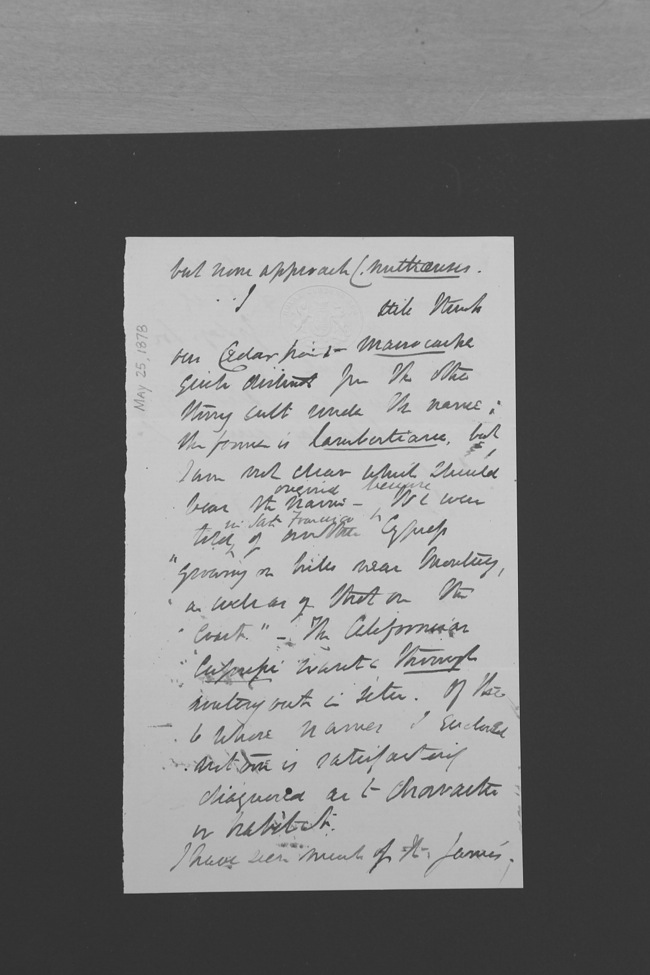 but none approach C. nutkaensis.
I still think
our Cedar point Macrocarpa
quite distinct from the other
thing cult under the name;
the former is Lambertiana, but
I am not clear which should
bear the original name – because We were
told in San Francisco of another Cypress
"growing on hills near Monterey,
as well as of that on the
Coast." – The Californian
Cupressi want a thorough
working out in situ. Of the
6 whose names I enclosed
not one is satisfactorily
diagnosed as to character
or habitat.
I have seen much of St. James,
May 25, 1878